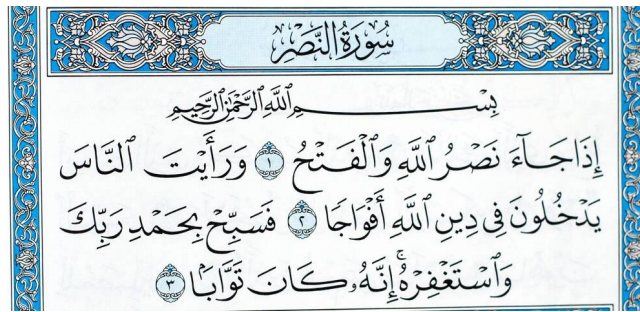 سُورَةُ النَّصْرِ
بِسْمِ اللَّهِ الرَّحْمَٰنِ الرَّحِيمِ
إِذَا جَآءَ نَصْرُ ٱللَّهِ وَٱلْفَتْحُ ١ وَرَأَيْتَ ٱلنَّاسَ
يَدْخُلُونَ فِى دِينِ ٱللَّهِ أَفْوَاجًا ٢ فَسَبِّحْ بِحَمْدِ رَبِّكَ
وَٱسْتَغْفِرْهُۚ إِنَّهُۥ كَانَ تَوَّابًۢا ٣